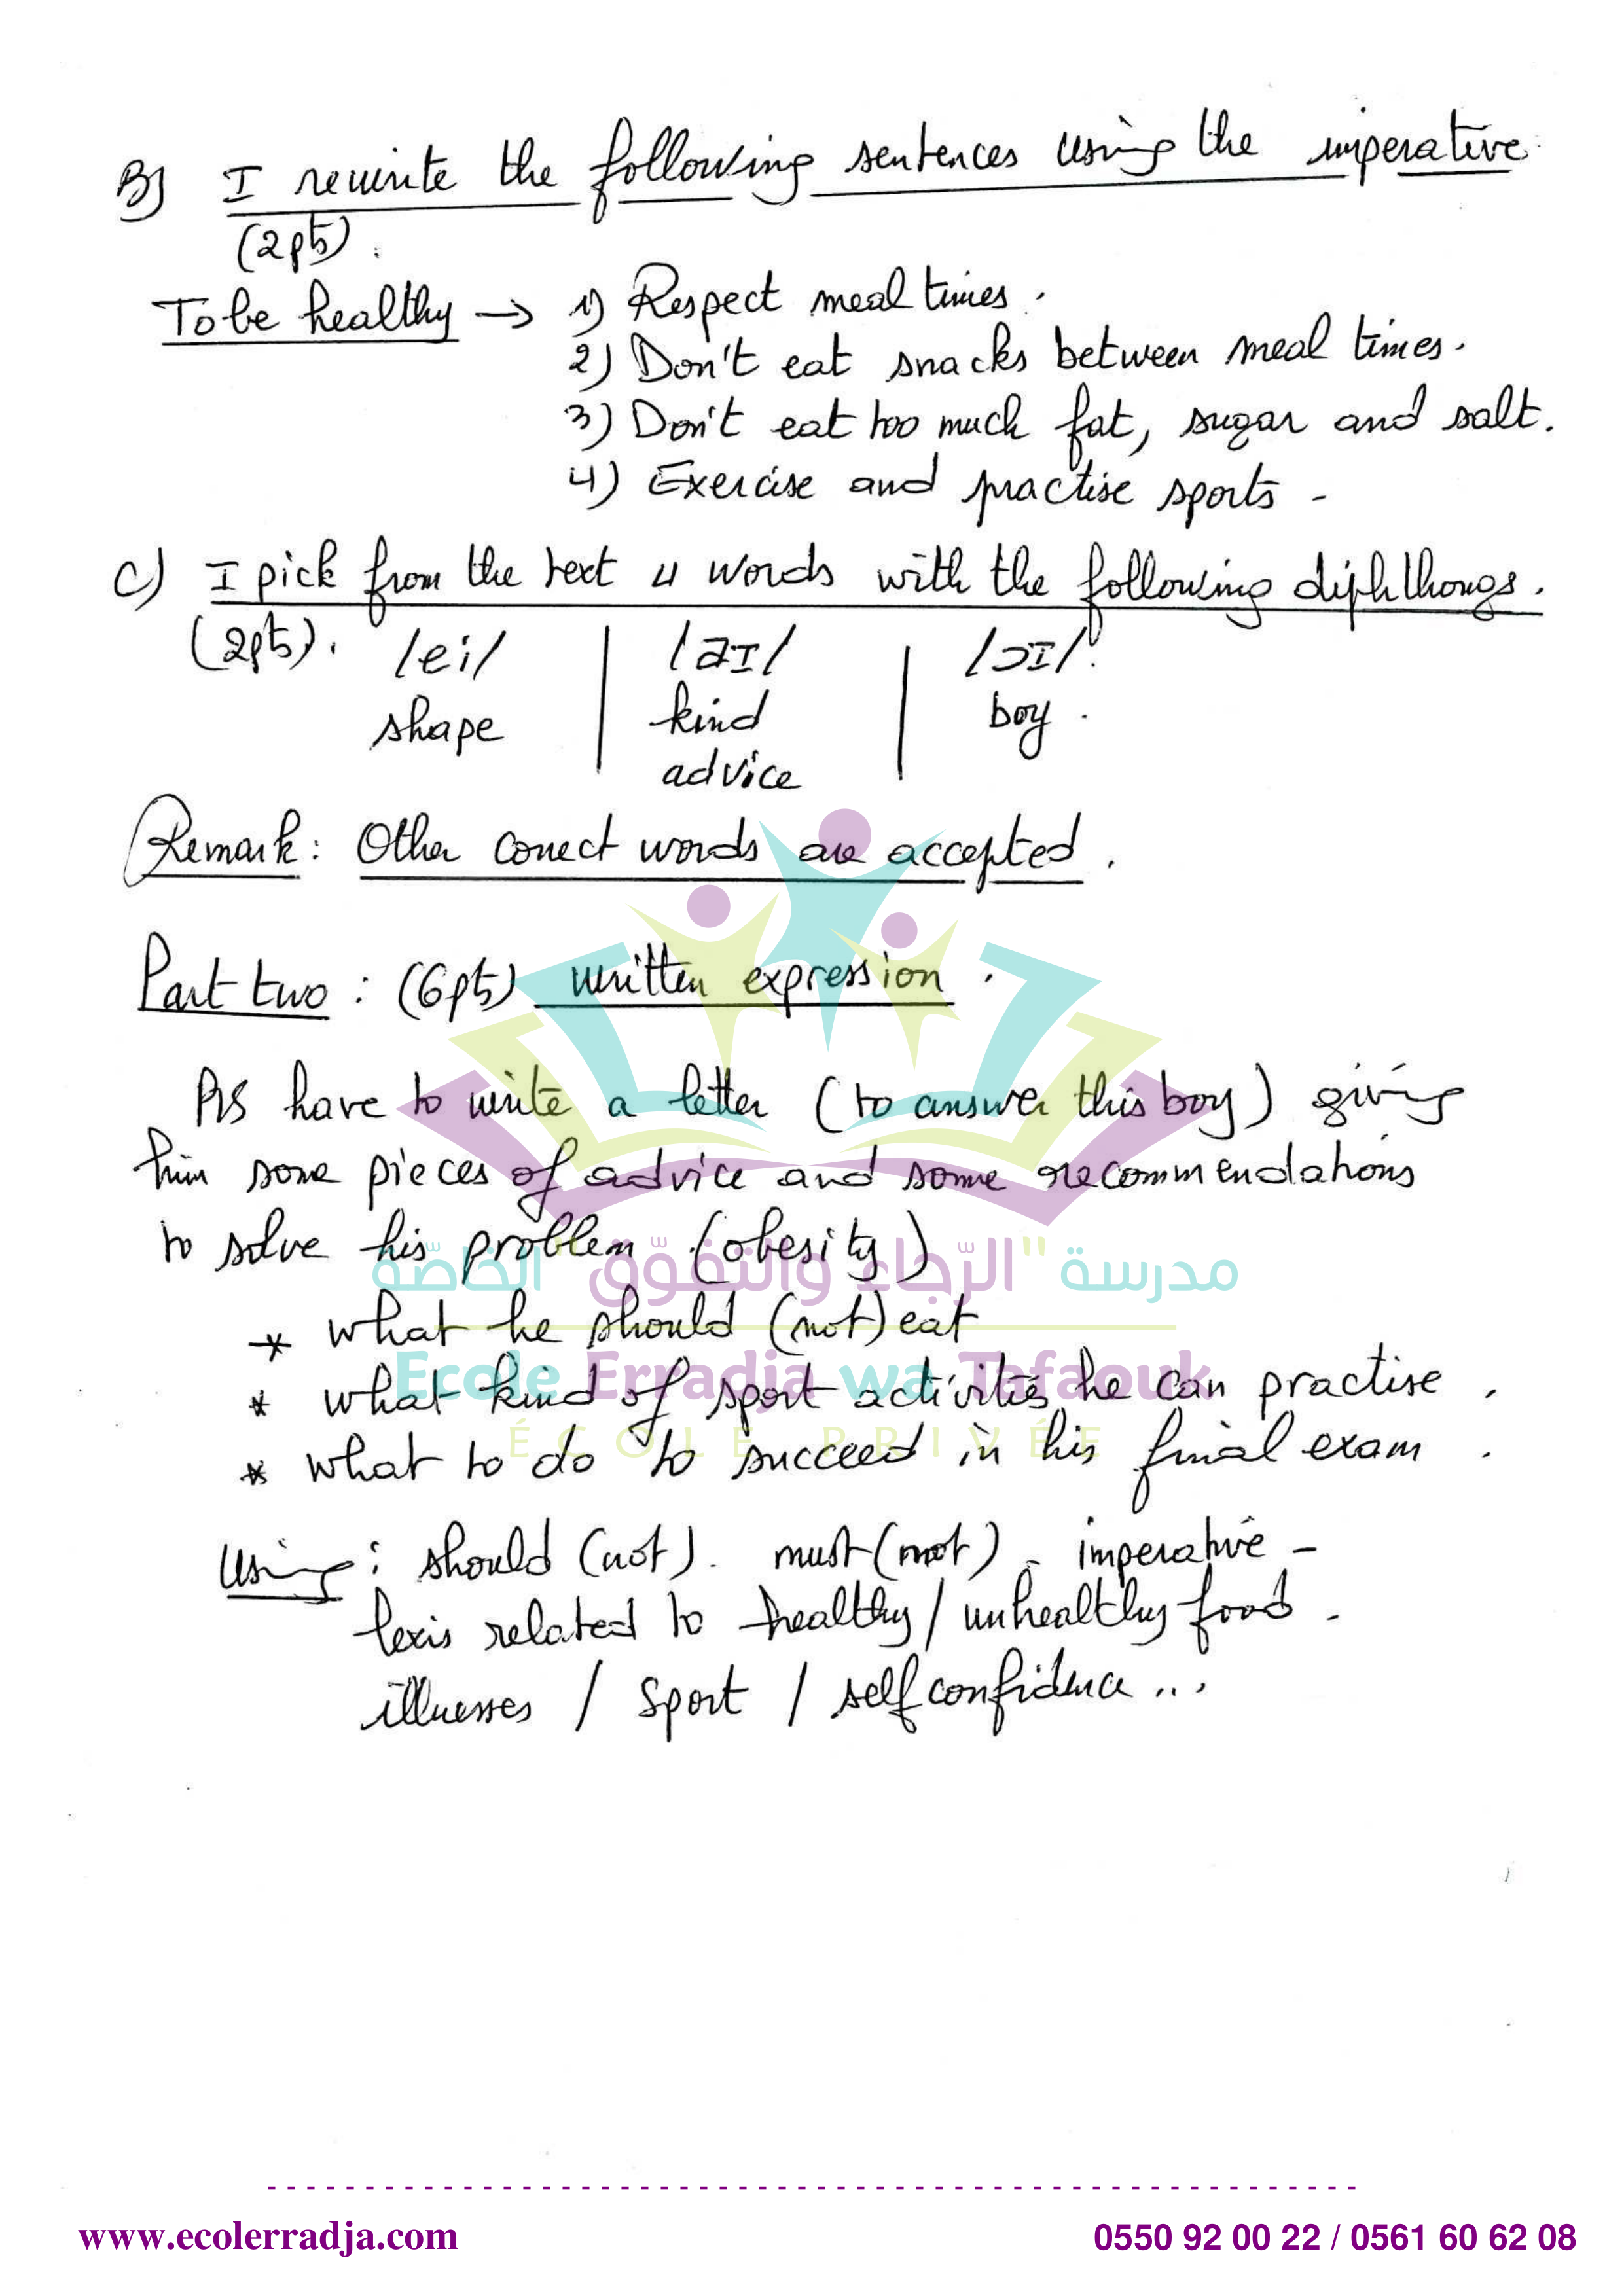 B) I rewrite the following sentences using the imperative.
(2pts).
To be healthy → 1) Respect meal times.
2) Don't eat snacks between meal times.
3) Don't eat too much fat, sugar and salt.
4) Exercise and practise sports -
C) I pick from the text 4 words with the following diphthongs.
(2pts). /ei/ | /aɪ/ | /ɔɪ/.
shape | kind | boy.
advice
Remark: Other correct words are accepted.
Part two: (6pts) written expression.
PLS have to write a letter (to answer this boy) giving
him some pieces of advice and some recommendations
to solve his problem (obesity)
مدرسة "الرّجاء والتفوّق" الخاصّة
* what he should (not) eat
Ecole Erradja wa Tafaouk
* what kind of sport activities he can practise.
ÉCOLE PRIVÉE
* what to do to succeed in his final exam.
Using: should (not). must (not) - imperative -
lexis related to healthy / unhealthy food -
illnesses / sport / self confidence...
www.ecolerradja.com
0550 92 00 22 / 0561 60 62 08